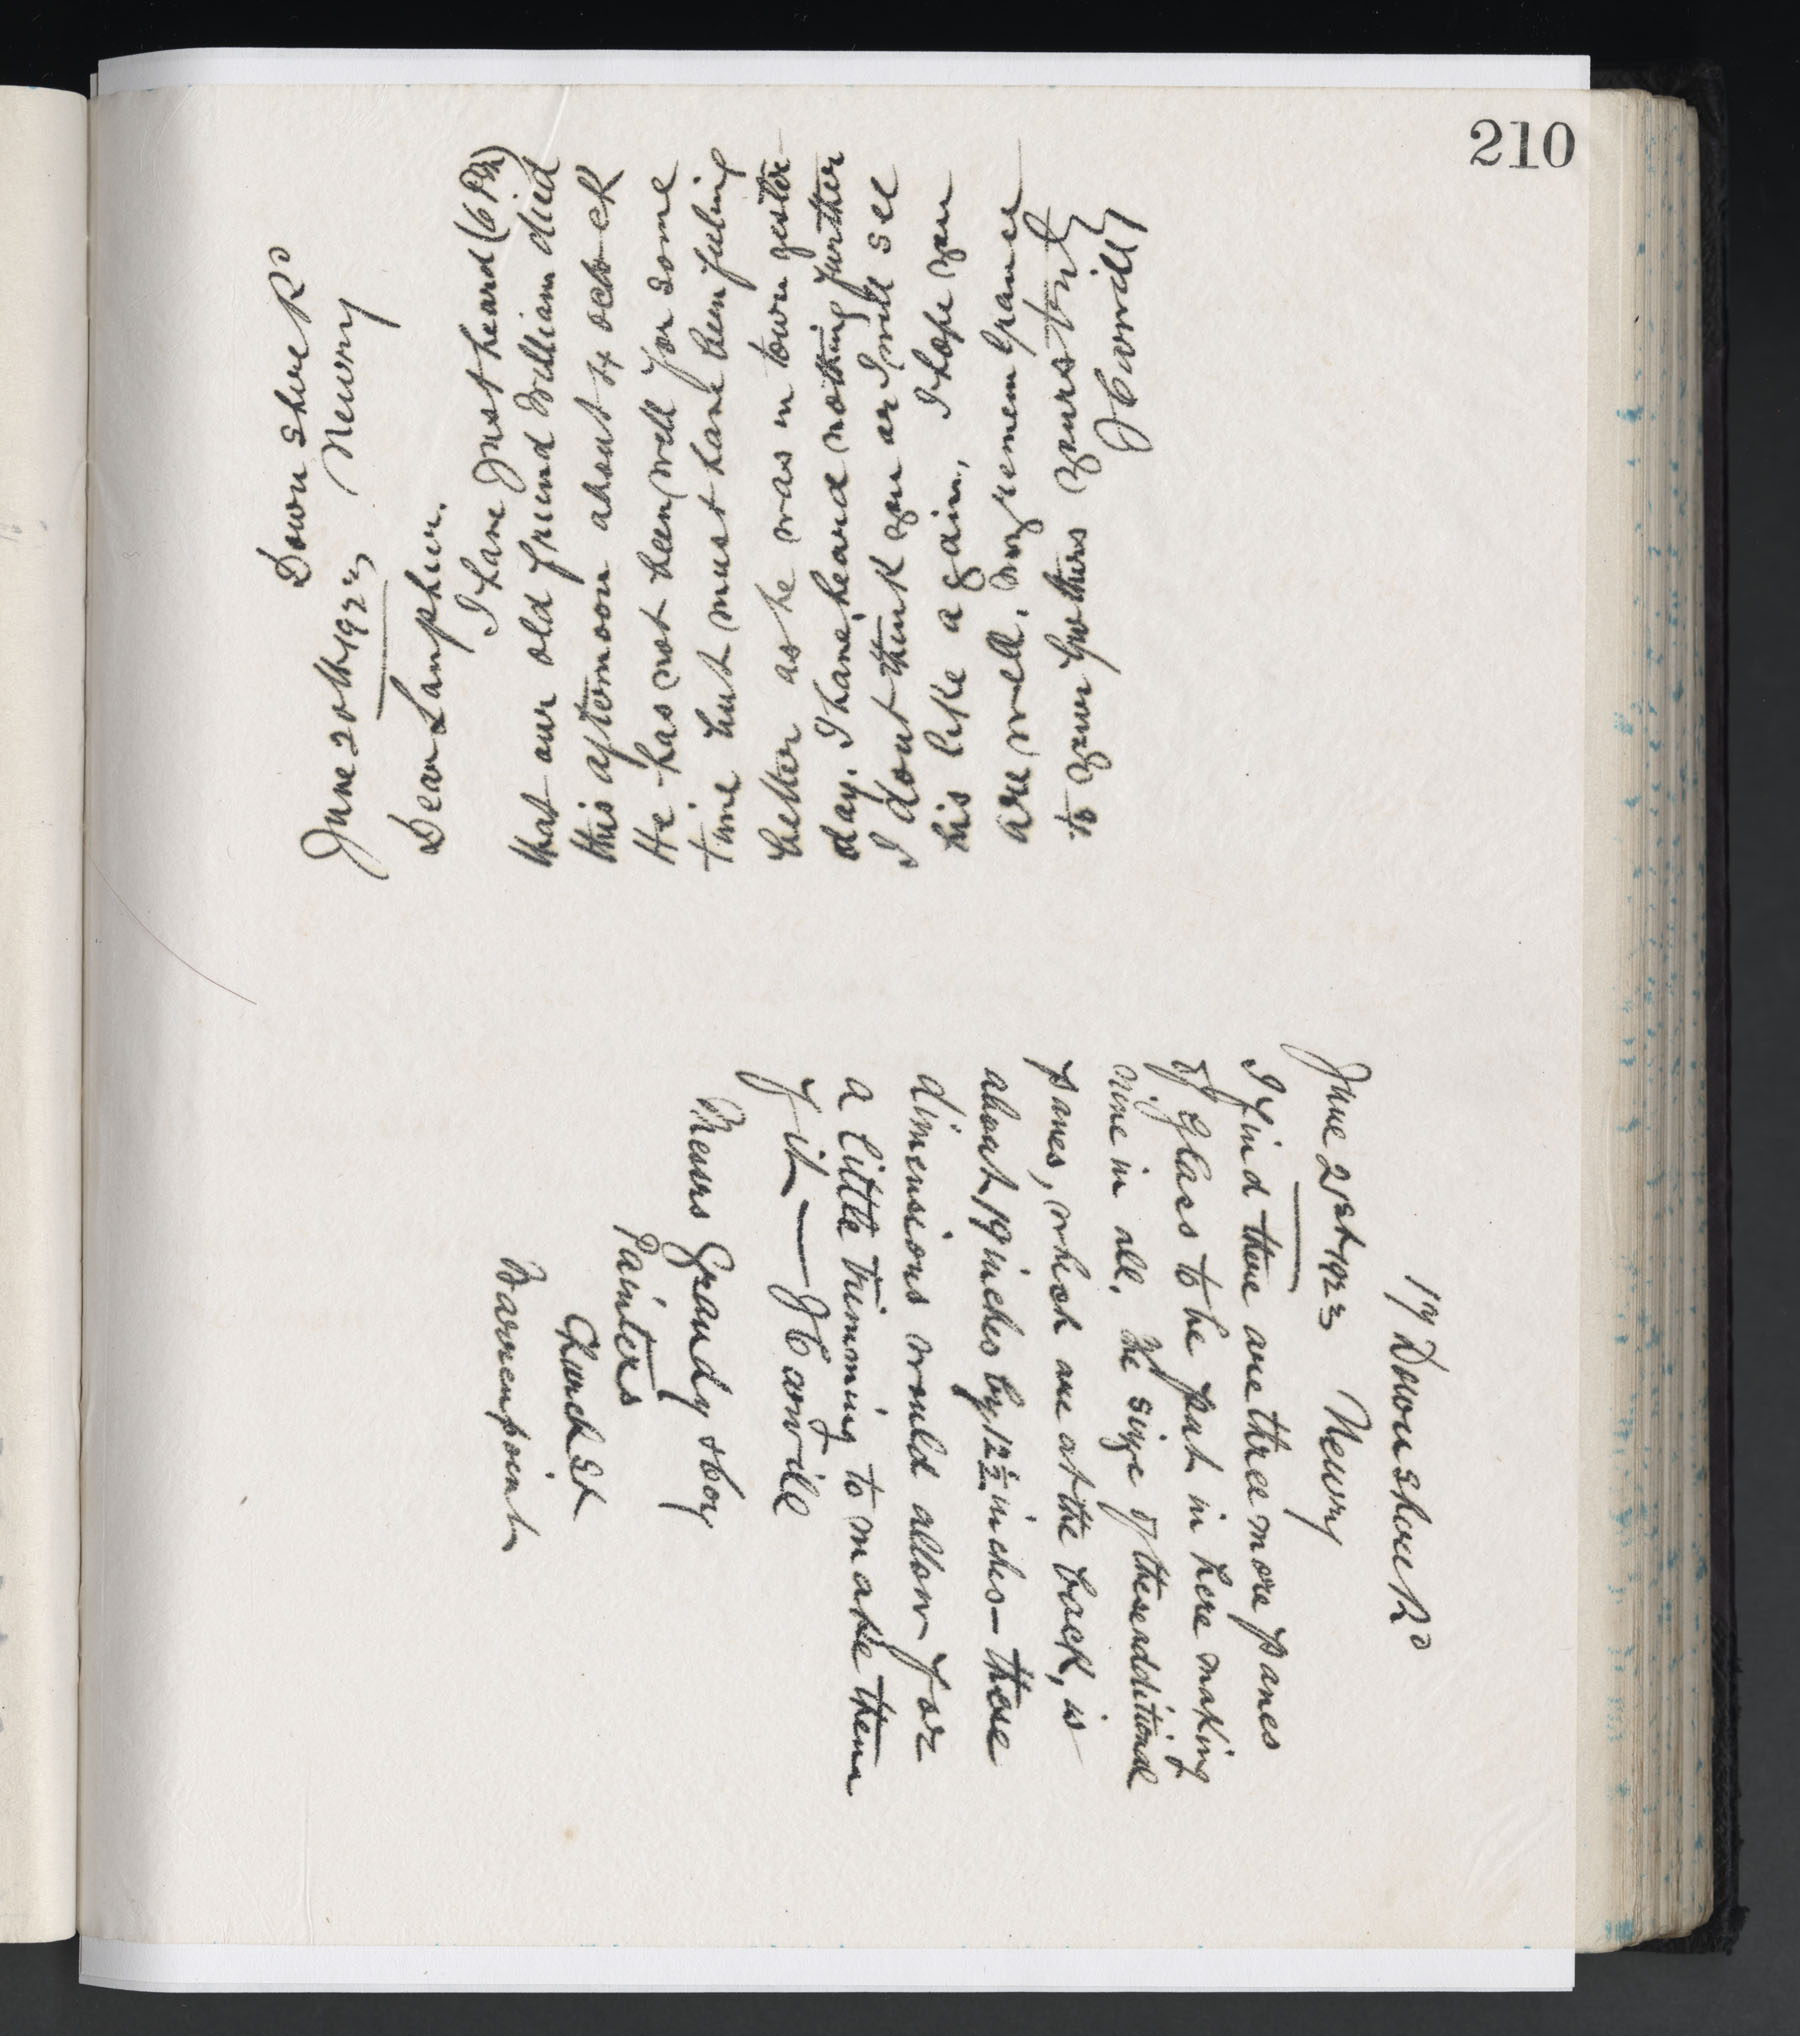 210
Downshire Rd
Newry
June 20th 1923
Dear Lamphier.
I have just heard (6 PM)
that our old friend William died
this afternoon about 4 oclock
He has not been well for some
time but must have been feeling
better as he was in town yester-
day. I have heard nothing further
I dont think you or I will see
his like again. I hope you
are well.
to
yours
17 Downshire Rd
June 21st 1923 Newry
I find there are three more panes
of glass to be put in here making
nine in all. The size of these additional
panes, which are at the back, is
about 19 inches by 12 1/2 inches - those
dimensions would allow for
a little trimming to make them
fit —
Messrs Grandy & Coy
Painters
Church St
Warrenpoint